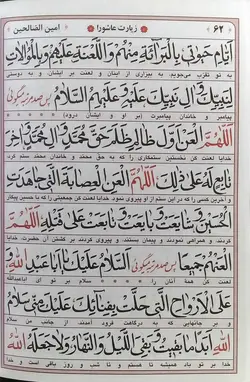 ۶۲ زیارت عاشورا امین الصالحین
اَيّامَ حَيوتى بِالْبَرآئَةِ مِنْهُمْ وَاللَّعْنَةِ عَلَيْهِمْ وَبِالْمُوالاتِ
به تو تقرب می‌جویم، به بیزاری از اینان و لعنت بر ایشان، و به دوستی
لِنَبِيِّكَ وَآلِ نَبِيِّكَ عَلَيْهِ وَعَلَيْهِمُ السَّلامُ پس صد مرتبه میگوئی
پیامبر و خاندان پیامبرت (بر او و ایشان درود)
اَللّهُمَّ الْعَنْ اَوَّلَ ظالِمٍ ظَلَمَ حَقَّ مُحَمَّدٍ وَآلِ مُحَمَّدٍ وَآخِرَ
خدایا لعنت کن نخستین ستمکاری را که به حق محمد و خاندان محمد ستم کرد
تابِعٍ لَهُ عَلى ذلِكَ اَللّهُمَّ الْعَنِ الْعِصابَةَ الَّتى جاهَدَتِ
و آخرین کسی را که در این ستم از او پیروی نمود خدایا لعنت کن جمعیتی را که با حسین پیکار
الْحُسَيْنَ وَشايَعَتْ وَبايَعَتْ وَتابَعَتْ عَلى قَتْلِهِ اَللّهُمَّ
کردند و همراهی نمودند و پیمان بستند و پیروی کردند بر کشتن آن حضرت، خدایا
الْعَنْهُمْ جَميعاً پس صد مرتبه میگوئی اَلسَّلامُ عَلَيْكَ يا اَبا عَبْدِ اللهِ وَ
لعنت کن همۀ آنان را سلام بر تو ای اباعبدالله
عَلَى الْاَرْواحِ الَّتى حَلَّتْ بِفِنائِكَ عَلَيْكَ مِنّى سَلامُ
و بر جانهایی که به درگاهت فرود آمدند، از جانب من سلام
اللهِ اَبَداً ما بَقيتُ وَبَقِىَ اللَّيْلُ وَالنَّهارُ وَلا جَعَلَهُ اللهُ
خدا بر تو باد همیشه تا هستم و تا شب و روز باقی است و خدا